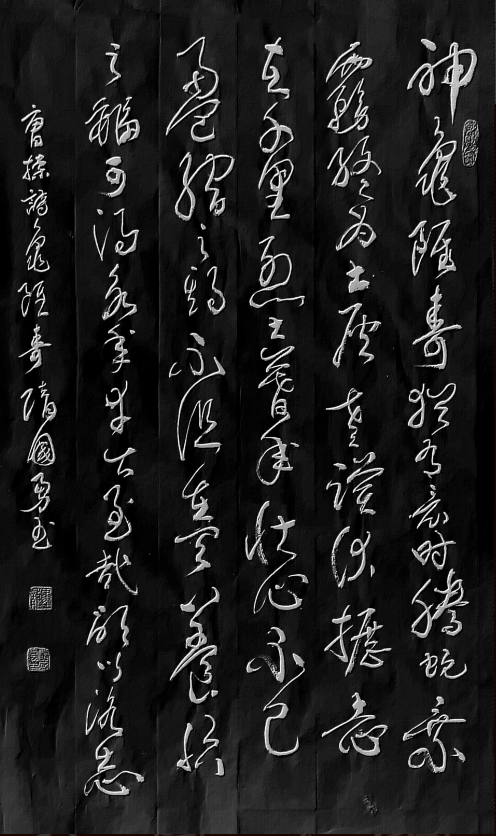 神龜雖壽猶有竟時騰蛇乘
霧終為土灰老驥伏櫪志
在千里烈士暮年壯心不已
盈縮之期不但在天養怡
之福可得永年幸甚至哉歌以詠志
曹操詩龜雖壽隋國勇書